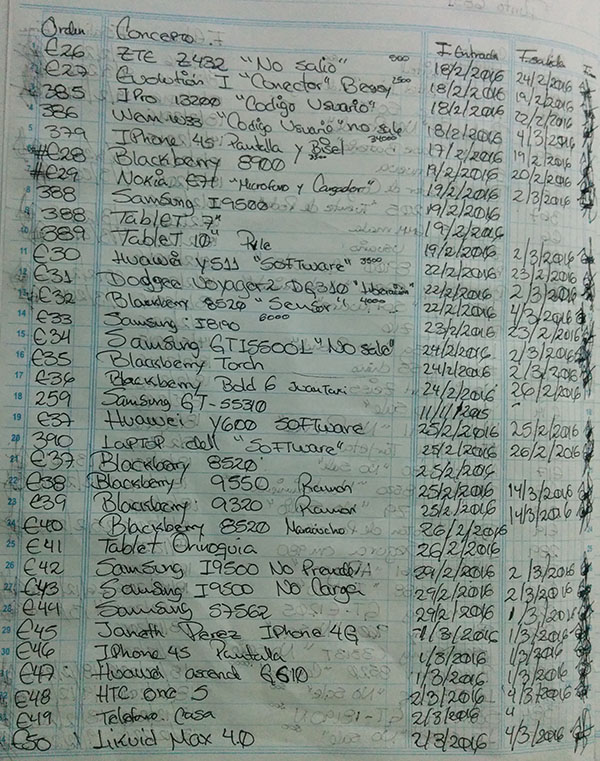 Orden Concepto F. Entrada F. salida
E26 ZTE Z432 "No salio" 18/2/2016 24/2/2016
E27 Evolution I "Conector" 2500 18/2/2016 19/2/2016
385 IPro I3200 "Codigo Usuario" 18/2/2016 22/2/2016
386 "Codigo Usuario" no sale 18/2/2016 4/3/2016
379 IPhone 4s Pantalla y Bisel 17/2/2016 19/2/2016
#E28 Blackberry 8900 19/2/2016 20/2/2016
#E29 Nokia E71 "Microfono y Cargador" 19/2/2016 2/3/2016
388 Samsung I9500 19/2/2016
388 Tablet 7" 19/2/2016
389 Tablet 10" 19/2/2016 2/3/2016
E30 Huawei Y511 "Software" 3500 22/2/2016 23/2/2016
E31 Doogee Voyager2 DG310 "Liberación" 22/2/2016 2/3/2016
E32 Blackberry 8520 "Sensor" 4000 22/2/2016 4/3/2016
E33 Samsung: I8190 6000 23/2/2016 23/2/2016
E34 Samsung GTI5500L "No sale" 24/2/2016 2/3/2016
E35 Blackberry Torch 24/2/2016 2/3/2016
E36 Blackberry Bold 6 24/2/2016 26/2/2016
259 Samsung GT-S5310 11/11/2015 "
E37 Huawei Y600 Software 25/2/2016 25/2/2016
390 Laptop dell "Software" 25/2/2016 26/2/2016
E37 Blackberry 8520 25/2/2016
E38 Blackberry 9550 Ramon 25/2/2016 14/3/2016
E39 Blackberry 9320 Ramon 25/2/2016 14/3/2016
E40 Blackberry 8520 Maracucho 26/2/2016
E41 Tablet Orinoquia 26/2/2016
E42 Samsung I9500 No Prende 29/2/2016 2/3/2016
E43 Samsung I9500 No Carga 29/2/2016 2/3/2016
E44 Samsung S7562 29/2/2016 1/3/2016
E45 Janeth Perez IPhone 4G 1/3/2016 1/3/2016
E46 IPhone 4s Pantalla 1/3/2016 1/3/2016
E47 Huawei ascend G610 1/3/2016 1/3/2016
E48 HTC one S 2/3/2016 4/3/2016
E49 Telefono Casa 2/3/2016 "
E50 Likuid Max 4.0 2/3/2016 4/3/2016